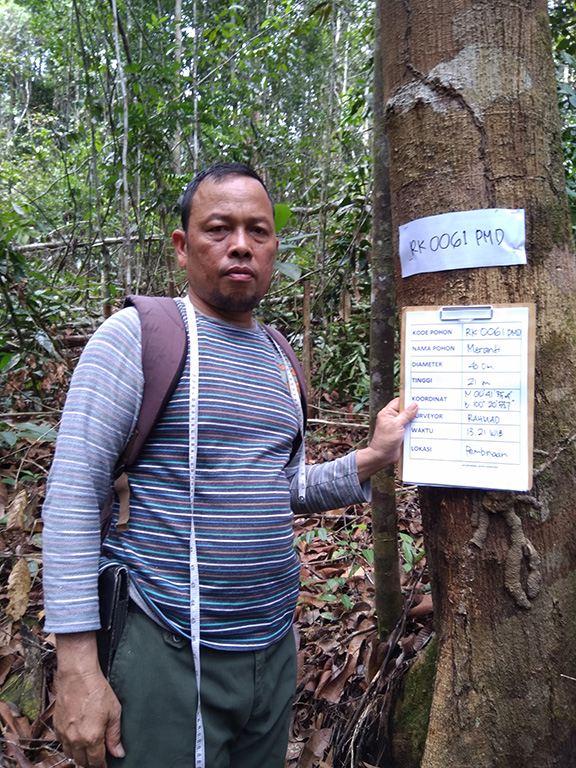 RK 0061 PMD
KODE POHON RK 0061 PMD
NAMA POHON Meranti
DIAMETER 40 cm
TINGGI 21 m
KOORDINAT N 00° 41'
E 100° 20'
SURVEYOR RAHMAD
WAKTU 13.21 WIB
LOKASI Pembinaan